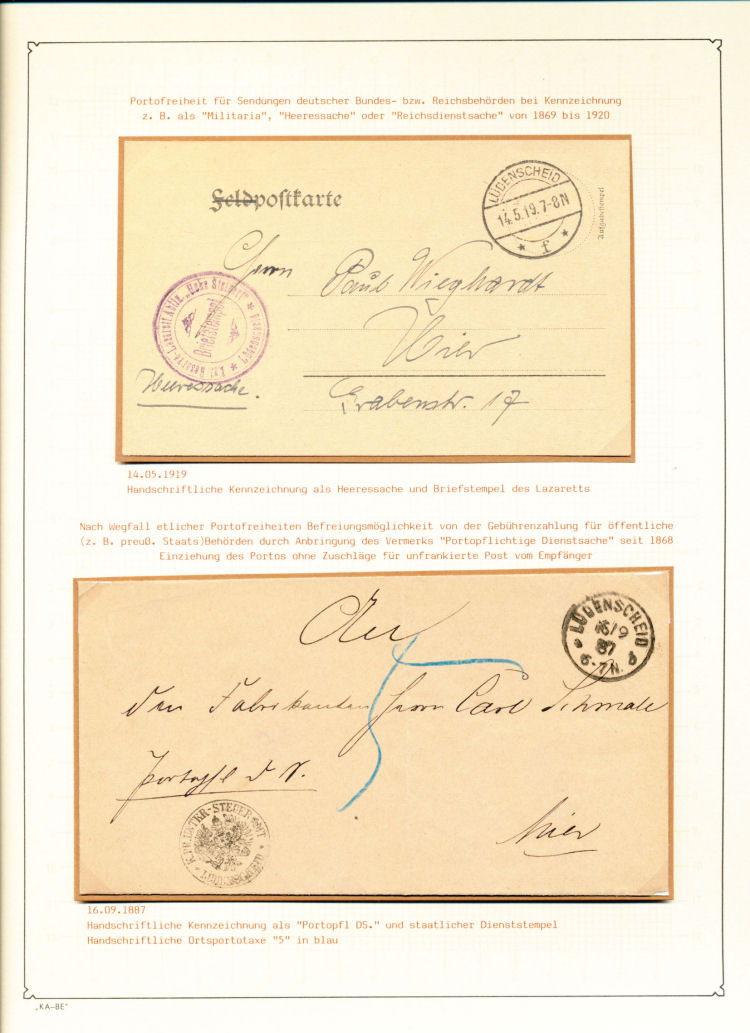 Portofreiheit für Sendungen deutscher Bundes- bzw. Reichsbehörden bei Kennzeichnung
z. B. als "Militaria", "Heeressache" oder "Reichsdienstsache" von 1869 bis 1920
Feldpostkarte
LÜDENSCHEID
14.5.19.7-8N
* f *
Aufgabestempel
Herrn Paul Wieghardt
Hier
Grabenstr. 17
Briefstempel
Heeressache.
14.05.1919
Handschriftliche Kennzeichnung als Heeressache und Briefstempel des Lazaretts
Nach Wegfall etlicher Portofreiheiten Befreiungsmöglichkeit von der Gebührenzahlung für öffentliche
(z. B. preuß. Staats)Behörden durch Anbringung des Vermerks "Portopflichtige Dienstsache" seit 1868
Einziehung des Portos ohne Zuschläge für unfrankierte Post vom Empfänger
An
LÜDENSCHEID
16/9
87
6-7N.
5
den Fabrikanten Herrn Carl Schmale
Portopfl D S.
hier
K.PR.UNTER-STEUER-AMT
LÜDENSCHEID
16.09.1887
Handschriftliche Kennzeichnung als "Portopfl DS." und staatlicher Dienststempel
Handschriftliche Ortsportotaxe "5" in blau
„KA–BE"